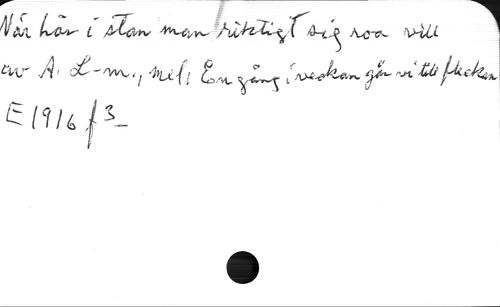 När här i stan man riktigt sig roa vill
av A. L-m., mel: En gång i veckan går vi till flickan
E 1916 f 3_